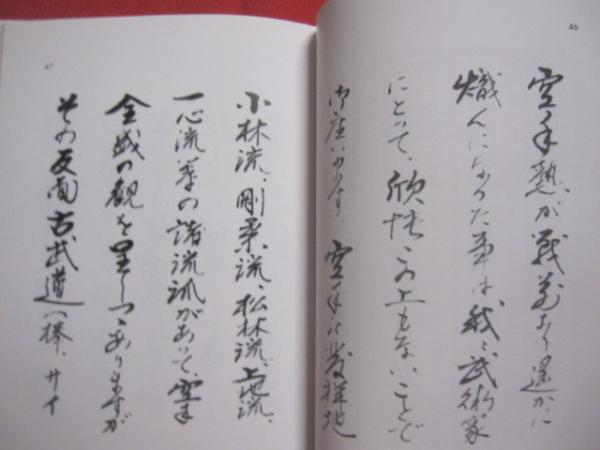 46
空手熱が戦前より遥かに
熾んになった事は我々武術家
にとって、欣快この上もないことで
御座います。空手の発祥地
47
小林流、剛柔流、松林流、上地流、
一心流等の諸流派があって、空手
全盛の観を呈しつゝありますが
その反面古武道(棒、サイ